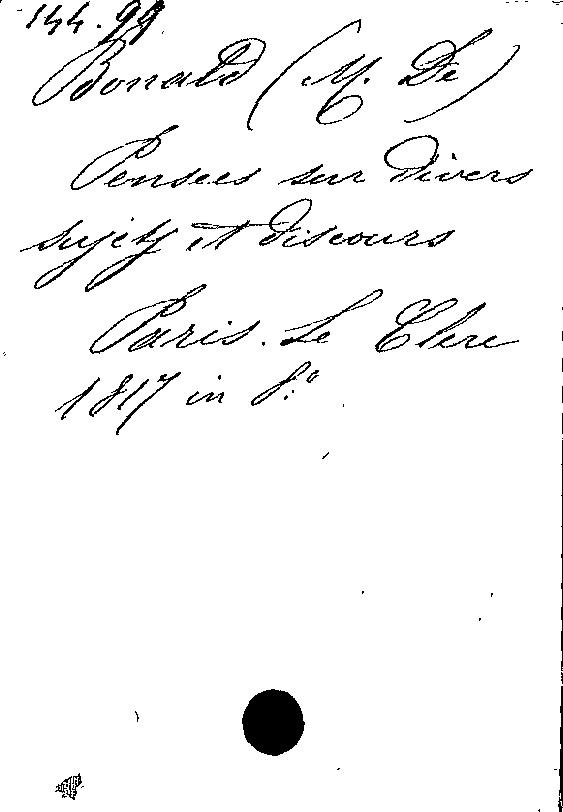 144.99
Bonald (M. De)
Pensees sur divers
sujets et discours
Paris. Le Clere
1817 in 8.º